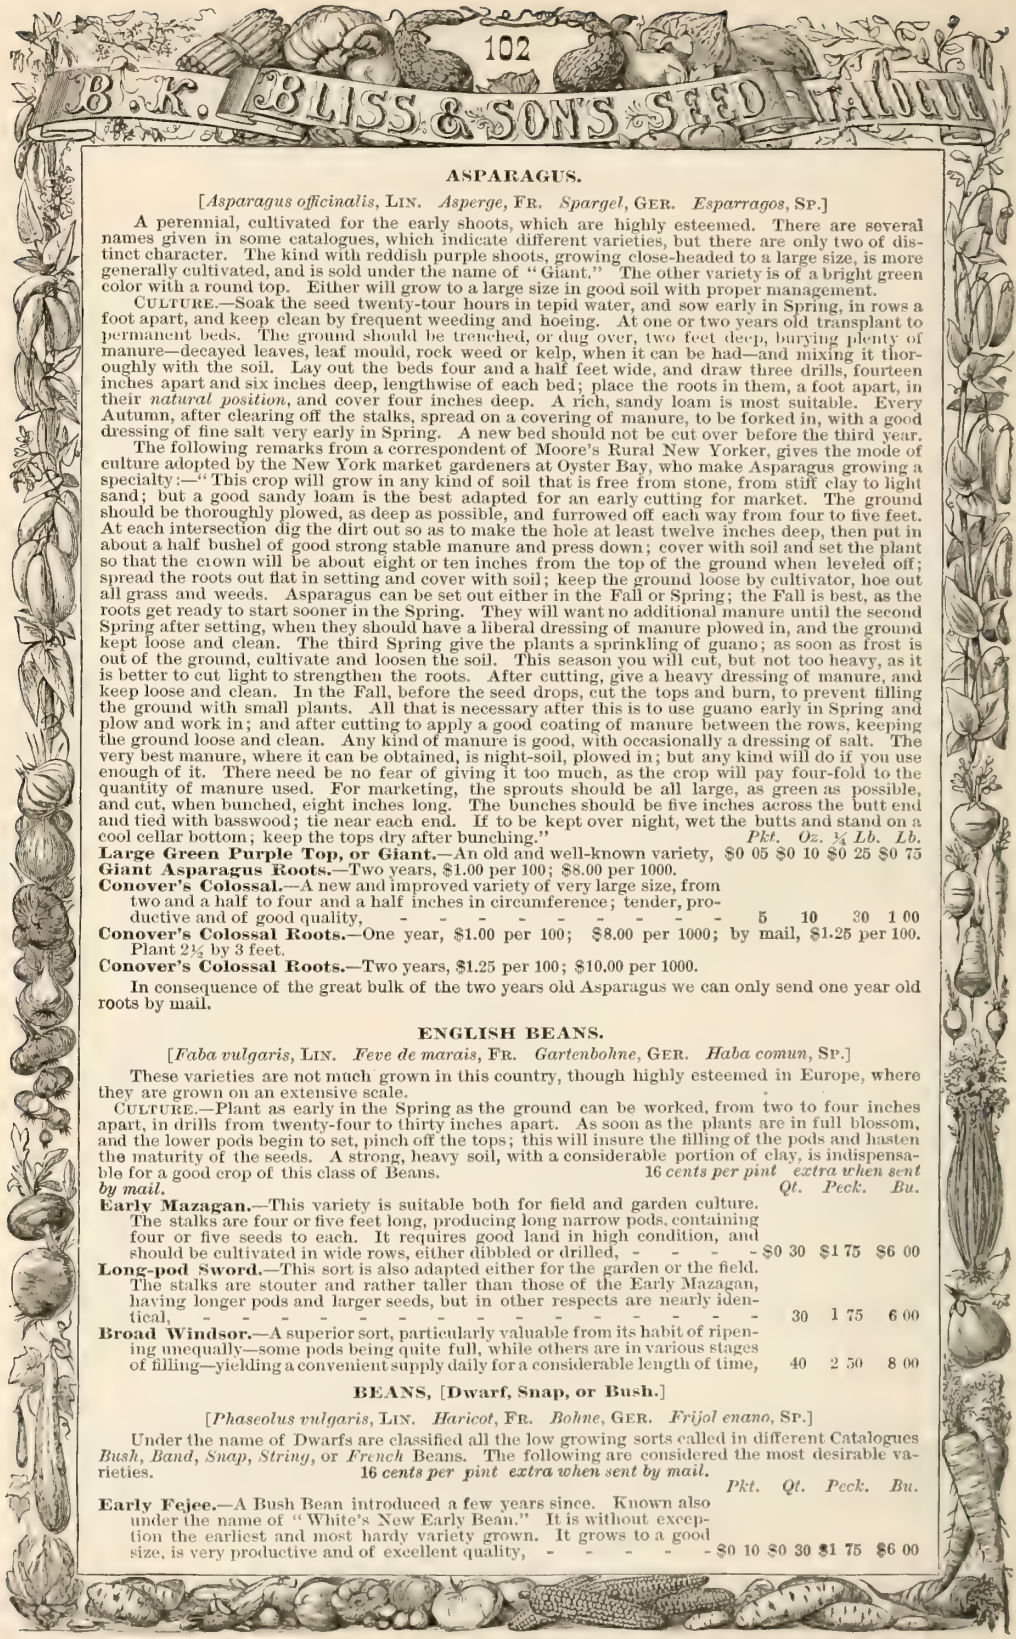 102
B. K. BLISS & SON'S SEED CATALOGUE
ASPARAGUS.
[Asparagus officinalis, LIN. Asperge, FR. Spargel, GER. Esparragos, SP.]
A perennial, cultivated for the early shoots, which are highly esteemed. There are several
names given in some catalogues, which indicate different varieties, but there are only two of dis-
tinct character. The kind with reddish purple shoots, growing close-headed to a large size, is more
generally cultivated, and is sold under the name of "Giant." The other variety is of a bright green
color with a round top. Either will grow to a large size in good soil with proper management.
CULTURE.—Soak the seed twenty-tour hours in tepid water, and sow early in Spring, in rows a
foot apart, and keep clean by frequent weeding and hoeing. At one or two years old transplant to
permanent beds. The ground should be trenched, or dug over, two feet deep, burying plenty of
manure—decayed leaves, leaf mould, rock weed or kelp, when it can be had—and mixing it thor-
oughly with the soil. Lay out the beds four and a half feet wide, and draw three drills, fourteen
inches apart and six inches deep, lengthwise of each bed; place the roots in them, a foot apart, in
their natural position, and cover four inches deep. A rich, sandy loam is most suitable. Every
Autumn, after clearing off the stalks, spread on a covering of manure, to be forked in, with a good
dressing of fine salt very early in Spring. A new bed should not be cut over before the third year.
The following remarks from a correspondent of Moore's Rural New Yorker, gives the mode of
culture adopted by the New York market gardeners at Oyster Bay, who make Asparagus growing a
specialty:—"This crop will grow in any kind of soil that is free from stone, from stiff clay to light
sand; but a good sandy loam is the best adapted for an early cutting for market. The ground
should be thoroughly plowed, as deep as possible, and furrowed off each way from four to five feet.
At each intersection dig the dirt out so as to make the hole at least twelve inches deep, then put in
about a half bushel of good strong stable manure and press down; cover with soil and set the plant
so that the crown will be about eight or ten inches from the top of the ground when leveled off;
spread the roots out flat in setting and cover with soil; keep the ground loose by cultivator, hoe out
all grass and weeds. Asparagus can be set out either in the Fall or Spring; the Fall is best, as the
roots get ready to start sooner in the Spring. They will want no additional manure until the second
Spring after setting, when they should have a liberal dressing of manure plowed in, and the ground
kept loose and clean. The third Spring give the plants a sprinkling of guano; as soon as frost is
out of the ground, cultivate and loosen the soil. This season you will cut, but not too heavy, as it
is better to cut light to strengthen the roots. After cutting, give a heavy dressing of manure, and
keep loose and clean. In the Fall, before the seed drops, cut the tops and burn, to prevent filling
the ground with small plants. All that is necessary after this is to use guano early in Spring and
plow and work in; and after cutting to apply a good coating of manure between the rows, keeping
the ground loose and clean. Any kind of manure is good, with occasionally a dressing of salt. The
very best manure, where it can be obtained, is night-soil, plowed in; but any kind will do if you use
enough of it. There need be no fear of giving it too much, as the crop will pay four-fold to the
quantity of manure used. For marketing, the sprouts should be all large, as green as possible,
and cut, when bunched, eight inches long. The bunches should be five inches across the butt end
and tied with basswood; tie near each end. If to be kept over night, wet the butts and stand on a
cool cellar bottom; keep the tops dry after bunching." Pkt. Oz. ¼ Lb. Lb.
Large Green Purple Top, or Giant.—An old and well-known variety, $0 05 $0 10 $0 25 $0 75
Giant Asparagus Roots.—Two years, $1.00 per 100; $8.00 per 1000.
Conover's Colossal.—A new and improved variety of very large size, from
two and a half to four and a half inches in circumference; tender, pro-
ductive and of good quality, - - - - - - - - - - 5 10 30 1 00
Conover's Colossal Roots.—One year, $1.00 per 100; $8.00 per 1000; by mail, $1.25 per 100.
Plant 2½ by 3 feet.
Conover's Colossal Roots.—Two years, $1.25 per 100; $10.00 per 1000.
In consequence of the great bulk of the two years old Asparagus we can only send one year old
roots by mail.
ENGLISH BEANS.
[Faba vulgaris, LIN. Feve de marais, FR. Gartenbohne, GER. Haba comun, SP.]
These varieties are not much grown in this country, though highly esteemed in Europe, where
they are grown on an extensive scale.
CULTURE.—Plant as early in the Spring as the ground can be worked, from two to four inches
apart, in drills from twenty-four to thirty inches apart. As soon as the plants are in full blossom,
and the lower pods begin to set, pinch off the tops; this will insure the filling of the pods and hasten
the maturity of the seeds. A strong, heavy soil, with a considerable portion of clay, is indispensa-
ble for a good crop of this class of Beans. 16 cents per pint extra when sent
by mail. Qt. Peck. Bu.
Early Mazagan.—This variety is suitable both for field and garden culture.
The stalks are four or five feet long, producing long narrow pods, containing
four or five seeds to each. It requires good land in high condition, and
should be cultivated in wide rows, either dibbled or drilled, - - - - $0 30 $1 75 $6 00
Long-pod Sword.—This sort is also adapted either for the garden or the field.
The stalks are stouter and rather taller than those of the Early Mazagan,
having longer pods and larger seeds, but in other respects are nearly iden-
tical, - - - - - - - - - - - - - - - - 30 1 75 6 00
Broad Windsor.—A superior sort, particularly valuable from its habit of ripen-
ing unequally—some pods being quite full, while others are in various stages
of filling—yielding a convenient supply daily for a considerable length of time, 40 2 50 8 00
BEANS, [Dwarf, Snap, or Bush.]
[Phaseolus vulgaris, LIN. Haricot, FR. Bohne, GER. Frijol enano, SP.]
Under the name of Dwarfs are classified all the low growing sorts called in different Catalogues
Bush, Band, Snap, String, or French Beans. The following are considered the most desirable va-
rieties. 16 cents per pint extra when sent by mail.
Pkt. Qt. Peck. Bu.
Early Fejee.—A Bush Bean introduced a few years since. Known also
under the name of "White's New Early Bean." It is without excep-
tion the earliest and most hardy variety grown. It grows to a good
size, is very productive and of excellent quality, - - - - - - $0 10 $0 30 $1 75 $6 00